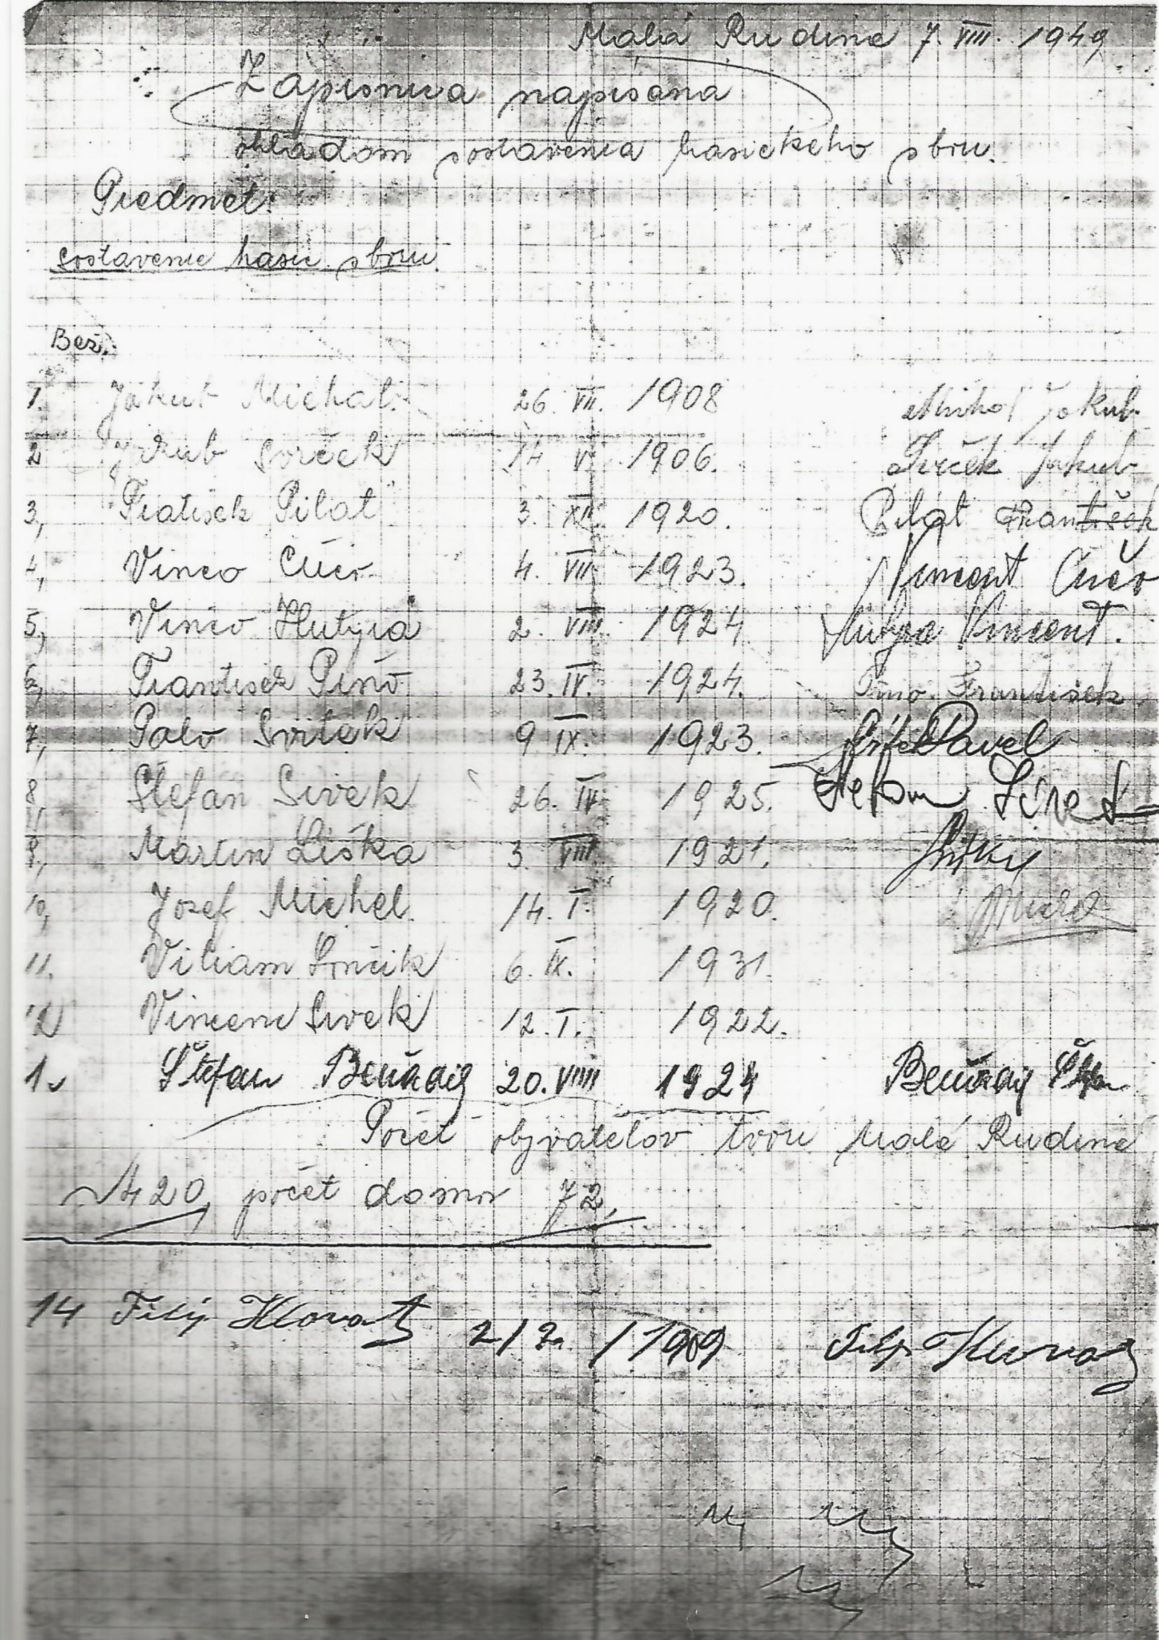 Malá Rudina 7. VIII. 1949
Zapisnica napisana
ohladom sostavenia hasičkeho sboru.
Predmet:
sostavenie hasič. sboru.
Bež.
1. Jakub Michal. 26. VII. 1908 Michal Jakub
2 Jakub Svrček 14 V. 1906. Svrček Jakub
3, Fratisek Pilat 3. 1920. Pilát František
4, Vinco Cúčo 4. VII. 1923. Vincent Čučo
5, Vinco Hutyra 2. VIII. 1924 Hutyra Vincent.
6, Frantisek Pino 23. IV. 1924. Pino František
7, Palo Svitek 9. IX. 1923. Svitek Pavel
8, Štefan Sivek 26. IV. 1925. Štefan Sivek
9, Martin Liška 3. VIII. 1921.
10, Jozef Michel. 14. I. 1920.
11. Viliam 6. IX. 1931.
12 Vincenc Sivek 12. I. 1922.
Štefan Beňadig 20. VIIII 1924 Beňadig
Počet obyvatelov tvoru Malé Rudine
420, počet domov 72,
14 Filip Hlovat 2/2. / 1909 Filip